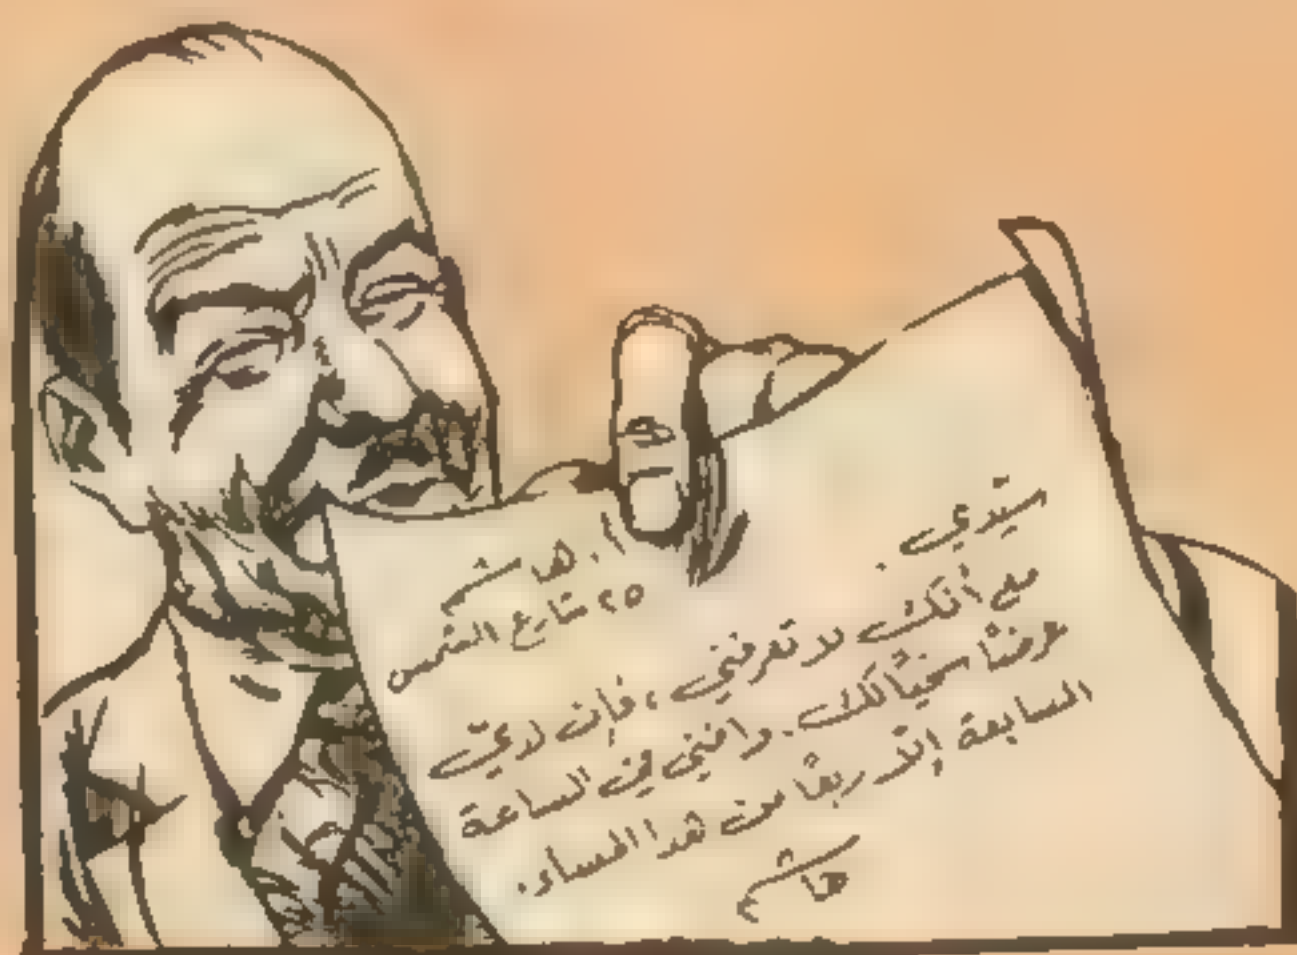 ا. هاشم
٢٥ شارع الشمس
سيّدي.
مع أنك لا تعرفني، فإن لديّ
عرضًا سخيًا لك. وافني في الساعة
السابعة إلّا ربعًا من هذا المساء.
هاشم